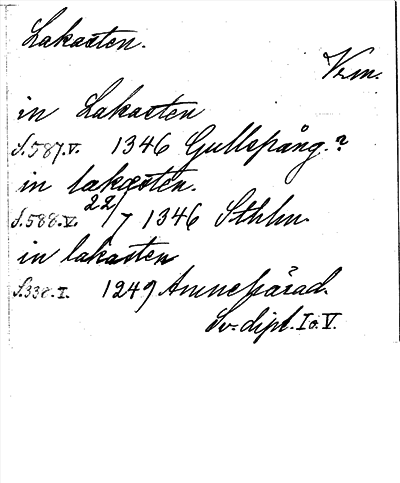 Lakasten.
Vrm.
in Lakasten
S.587.V. 1346 Gullspång.?
in lakæsten.
S.588.V. 22/7 1346 Sthlm
in lakasten
S.338.I. 1249 Amnehärad.
Sv. dipl. I o. V.